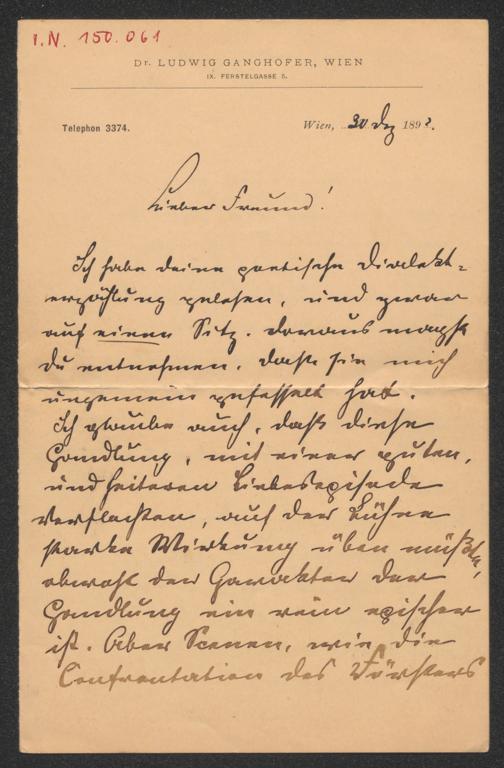 I.N. 150.061
Dr. LUDWIG GANGHOFER, WIEN
IX. FERSTELGASSE 5.
Telephon 3374.
Wien, 30 Dez 1892.
Lieber Freund!
Ich habe deine poetische Dialekt-
erzählung gelesen, und zwar
auf einen Sitz. Daraus magst
du entnehmen, daß sie mich
ungemein gefesselt hat.
Ich glaube auch, daß diese
Handlung, mit einer guten,
und heiteren Liebesepisode
verflochten, auf der Bühne
starke Wirkung üben müßte,
obwohl der Garakter der
Handlung ein rein epischer
ist. Aber Scenen, wie die
Confrontation des Försters